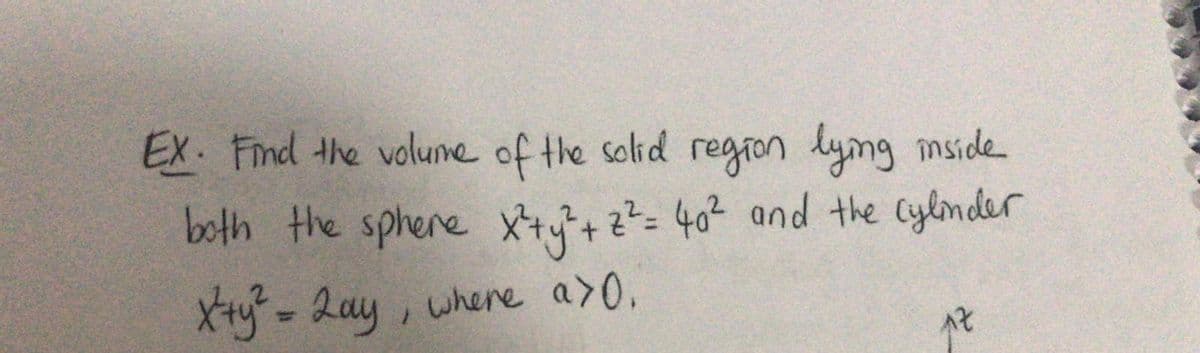 EX. Find the volume of the solid region lying inside
both the sphere x²+y²+z²=4a² and the cylinder
x²+y²=2ay, where a>0.
z